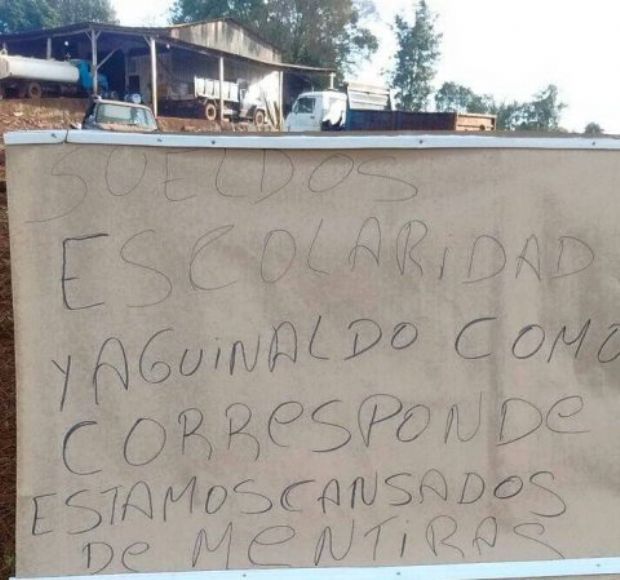 SUELDOS
ESCOLARIDAD
Y AGUINALDO COMO
CORResPONDe
ESTAMOS CANSADOS
De MeNTiRAS